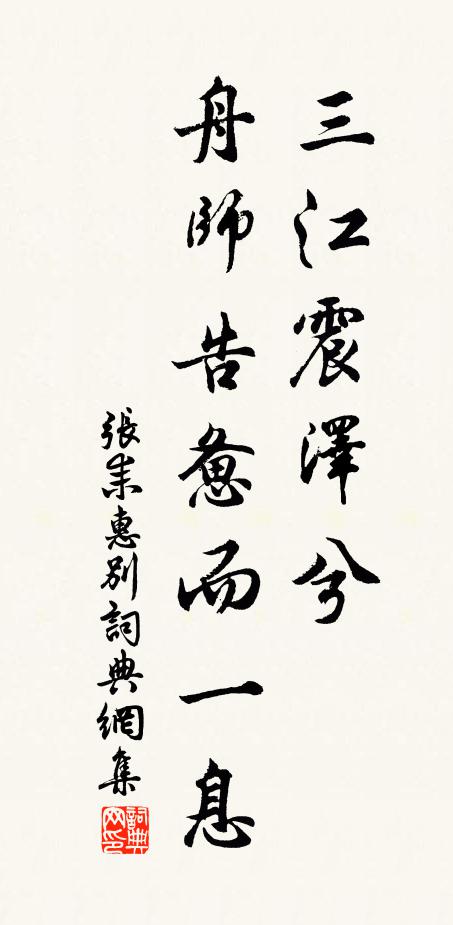 三江震澤兮
舟師告惫而一息
張耒惠別詞典網集
詞典网印